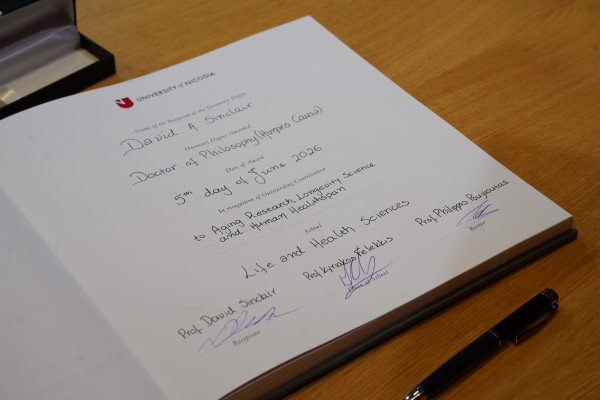 UNIVERSITY of NICOSIA
Name of the Recipient of the Honorary Degree
David A. Sinclair
Honorary Degree Awarded
Doctor of Philosophy (Honoris Causa)
Date of Award
5th day of June 2026
In recognition of Outstanding Contribution
to Aging Research, Longevity Science
and Human Healthspan
School
Life and Health Sciences
Prof David Sinclair
Recipient
Prof Kyriakos Felekkis
School
Prof Philippos Pouyioutas
Rector